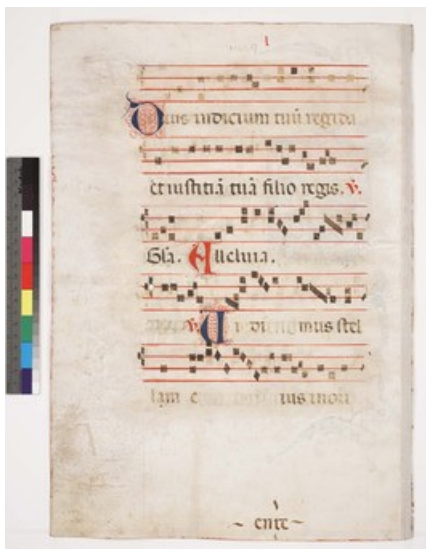 Deus iudicium tuū regi da
et iustitiā tuā filio regis. ℣.
Glā. Alleluia.
℣. Vidimus stel
lam eius in ori
~ ente ~